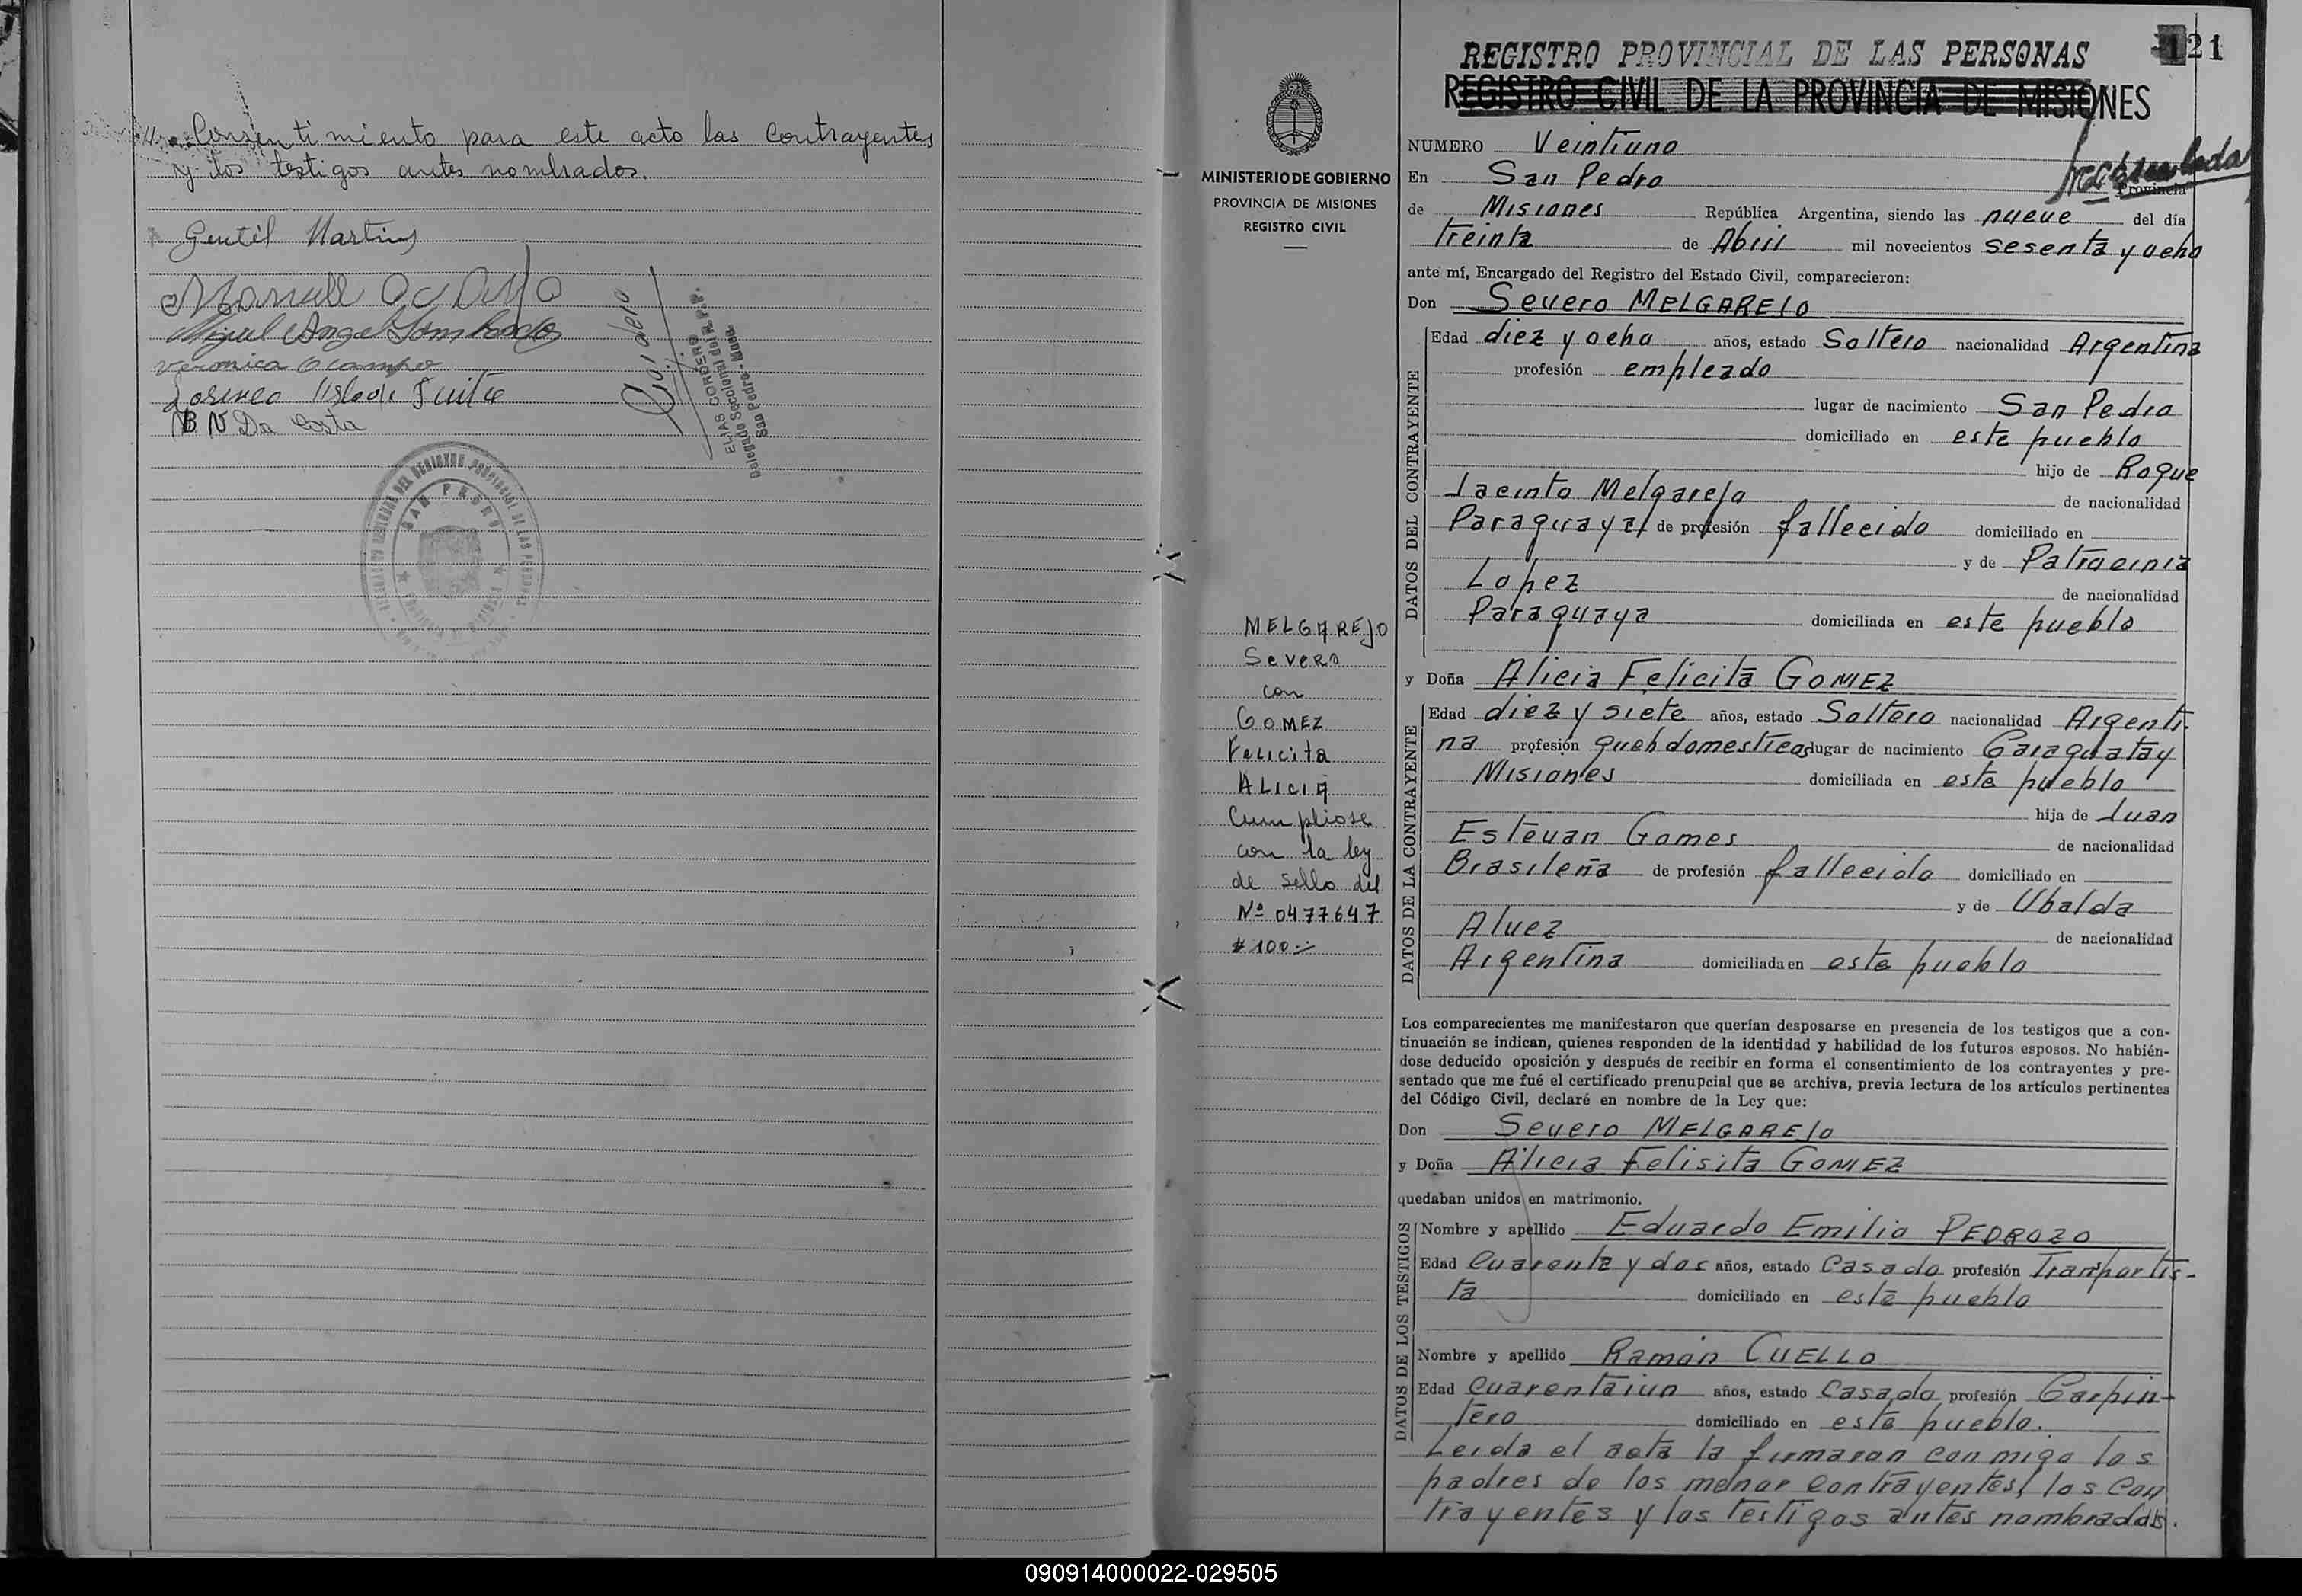 Consentimiento para este acto los Contrayentes
y los testigos antes nombrados.
Gentil Martins
Miguel Angel
Veronica Ocampo
B N Da Costa
ELIAS CORDERO
Delegado Seccional del R. P. P.
San Pedro - Mnes.
SAN PEDRO
MINISTERIO DE GOBIERNO
PROVINCIA DE MISIONES
REGISTRO CIVIL
MELGAREJO
Severo
con
GOMEZ
Felicita
ALICIA
Cumpliose
con la ley
de sello del
Nº 0477647
$ 100.-
121
REGISTRO PROVINCIAL DE LAS PERSONAS
REGISTRO CIVIL DE LA PROVINCIA DE MISIONES
NUMERO Veintiuno
En San Pedro Provincia
de Misiones República Argentina, siendo las nueve del día
Treinta de Abril mil novecientos sesenta y ocho
ante mí, Encargado del Registro del Estado Civil, comparecieron:
Don Severo MELGAREJO
DATOS DEL CONTRAYENTE
Edad diez y ocho años, estado Soltero nacionalidad Argentina
profesión empleado
lugar de nacimiento San Pedro
domiciliado en este pueblo
hijo de Roque
Jacinto Melgarejo de nacionalidad
Paraguaya de profesión fallecido domiciliado en
y de Patrocinia
Lopez de nacionalidad
Paraguaya domiciliada en este pueblo
y Doña Alicia Felicita GOMEZ
DATOS DE LA CONTRAYENTE
Edad diez y siete años, estado Soltera nacionalidad Argenti-
na profesión queh domesticos lugar de nacimiento Caraguatay
Misiones domiciliada en este pueblo
hija de Juan
Estevan Gomes de nacionalidad
Brasileña de profesión fallecido domiciliado en
y de Ubalda
Alvez de nacionalidad
Argentina domiciliada en este pueblo
Los comparecientes me manifestaron que querían desposarse en presencia de los testigos que a con-
tinuación se indican, quienes responden de la identidad y habilidad de los futuros esposos. No habién-
dose deducido oposición y después de recibir en forma el consentimiento de los contrayentes y pre-
sentado que me fué el certificado prenupcial que se archiva, previa lectura de los artículos pertinentes
del Código Civil, declaré en nombre de la Ley que:
Don Severo MELGAREJO
y Doña Alicia Felisita GOMEZ
quedaban unidos en matrimonio.
DATOS DE LOS TESTIGOS
Nombre y apellido Eduardo Emilio PEDROZO
Edad Cuarenta y dos años, estado Casado profesión Tranportis-
ta domiciliado en este pueblo
Nombre y apellido Ramon CUELLO
Edad Cuarentaiun años, estado Casado profesión Carpin-
tero domiciliado en este pueblo.
Leida el acta la firmaron conmigo los
padres de los menor contrayentes, los Con
trayentes y los testigos antes nombrados.
090914000022-029505